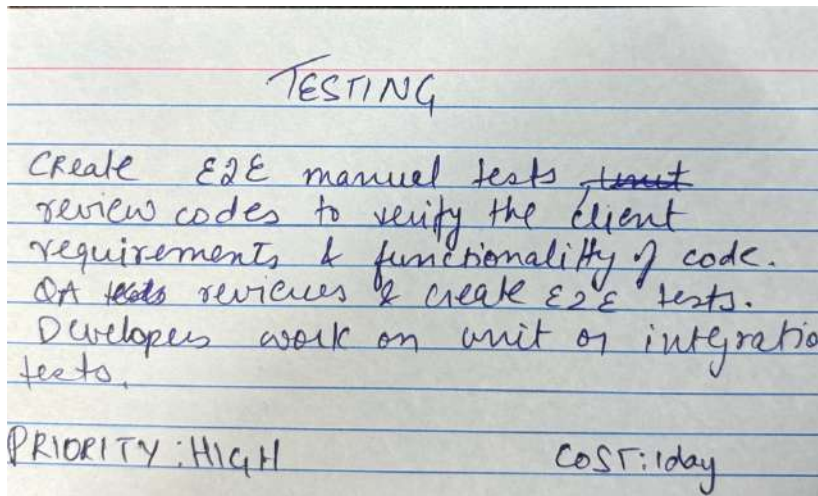 TESTING
Create E2E manuel tests,
review codes to verify the client
requirements & functionalitty of code.
QA reviews & create E2E tests.
Developers work on unit or integratio
tests.
PRIORITY: HIGH COST: 1day